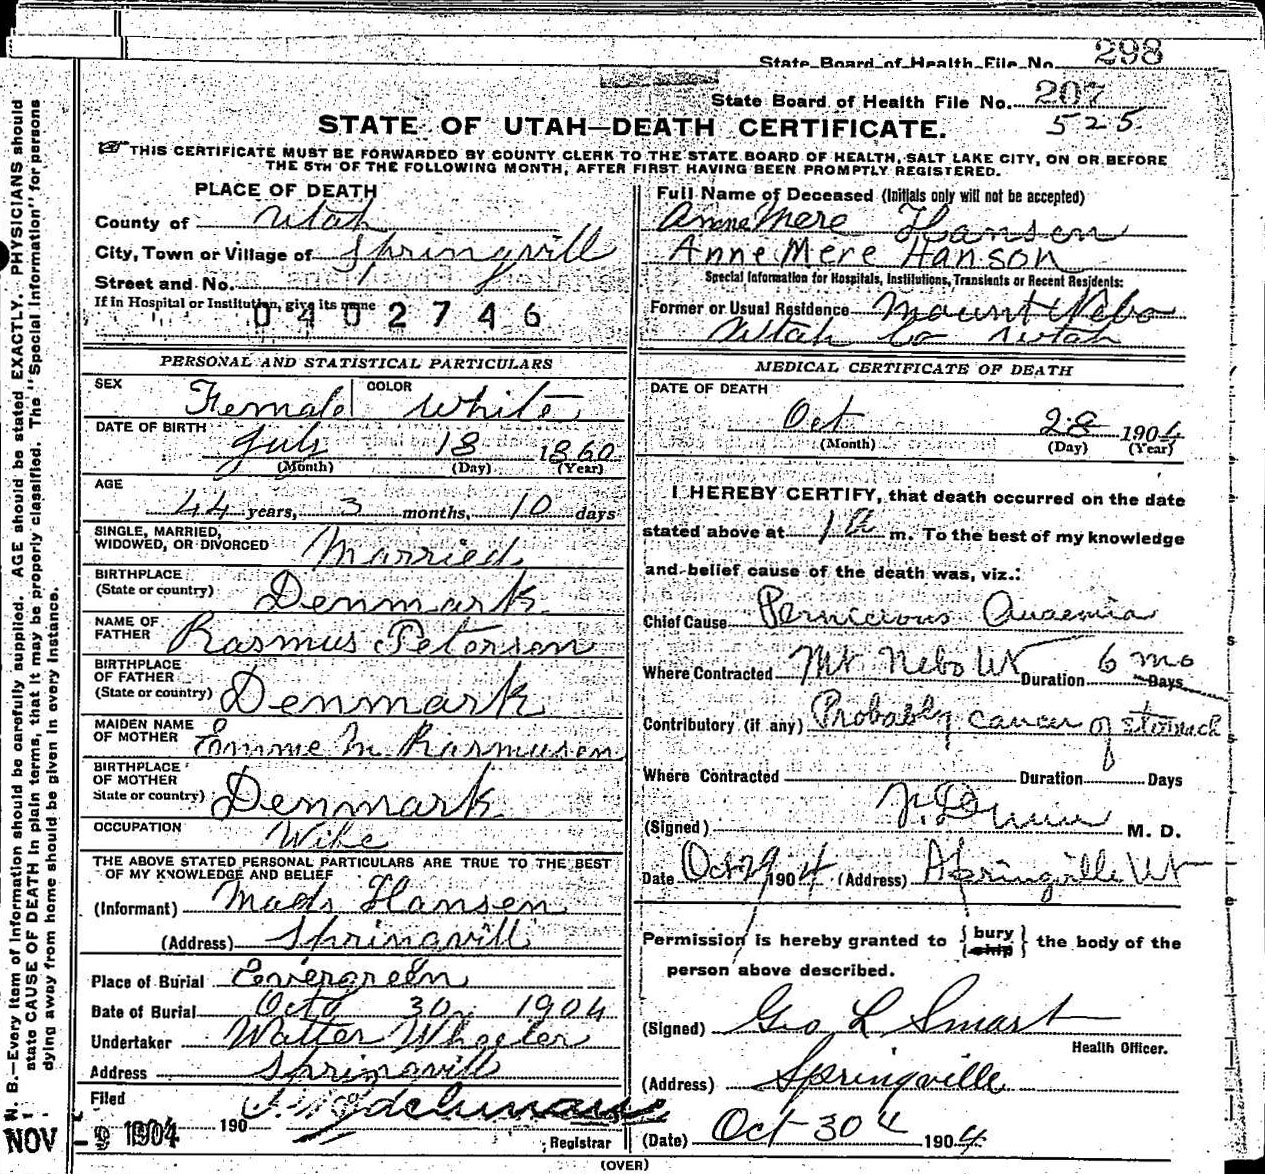 State Board of Health File No. 298
State Board of Health File No. 207
525.
STATE OF UTAH—DEATH CERTIFICATE.
THIS CERTIFICATE MUST BE FORWARDED BY COUNTY CLERK TO THE STATE BOARD OF HEALTH, SALT LAKE CITY, ON OR BEFORE
THE 5TH OF THE FOLLOWING MONTH, AFTER FIRST HAVING BEEN PROMPTLY REGISTERED.
PLACE OF DEATH
County of Utah
City, Town or Village of Springvill
Street and No.
If in Hospital or Institution, give its name
0402746
Full Name of Deceased (Initials only will not be accepted)
Anne Mere Hansen
Anne Mere Hanson
Special Information for Hospitals, Institutions, Transients or Recent Residents:
Former or Usual Residence Mount Nebo
Utah Co Utah
PERSONAL AND STATISTICAL PARTICULARS
SEX Female COLOR White
DATE OF BIRTH July 18 1860
(Month) (Day) (Year)
AGE
44 years, 3 months, 10 days
SINGLE, MARRIED,
WIDOWED, OR DIVORCED Married
BIRTHPLACE
(State or country) Denmark
NAME OF
FATHER Rasmus Petersen
BIRTHPLACE
OF FATHER
(State or country) Denmark
MAIDEN NAME
OF MOTHER Emme M Rasmusen
BIRTHPLACE
OF MOTHER
State or country) Denmark
OCCUPATION Wife
THE ABOVE STATED PERSONAL PARTICULARS ARE TRUE TO THE BEST
OF MY KNOWLEDGE AND BELIEF
(Informant) Mads Hansen
(Address) Springvill
Place of Burial Evergreen
Date of Burial Oct 30 1904
Undertaker Walter Wheeler
Address Springvill
Filed
NOV - 9 1904 190
Registrar
MEDICAL CERTIFICATE OF DEATH
DATE OF DEATH
Oct 28 1904
(Month) (Day) (Year)
I HEREBY CERTIFY, that death occurred on the date
stated above at 1 a m. To the best of my knowledge
and belief cause of the death was, viz.:
Chief Cause Pernicious Anaemia
Where Contracted Mt Nebo Ut Duration 6 mo Days
Contributory (if any) Probably cancer of stomach
Where Contracted Duration Days
(Signed) M. D.
Date Oct 29 1904 (Address) Springville Ut
Permission is hereby granted to { bury
ship } the body of the
person above described.
(Signed) Geo L Smart
Health Officer.
(Address) Springville
(Date) Oct 30 4 1904
(OVER)
N. B.—Every item of information should be carefully supplied. AGE should be stated EXACTLY. PHYSICIANS should
state CAUSE OF DEATH in plain terms, that it may be properly classified. The "Special Information" for persons
dying away from home should be given in every instance.